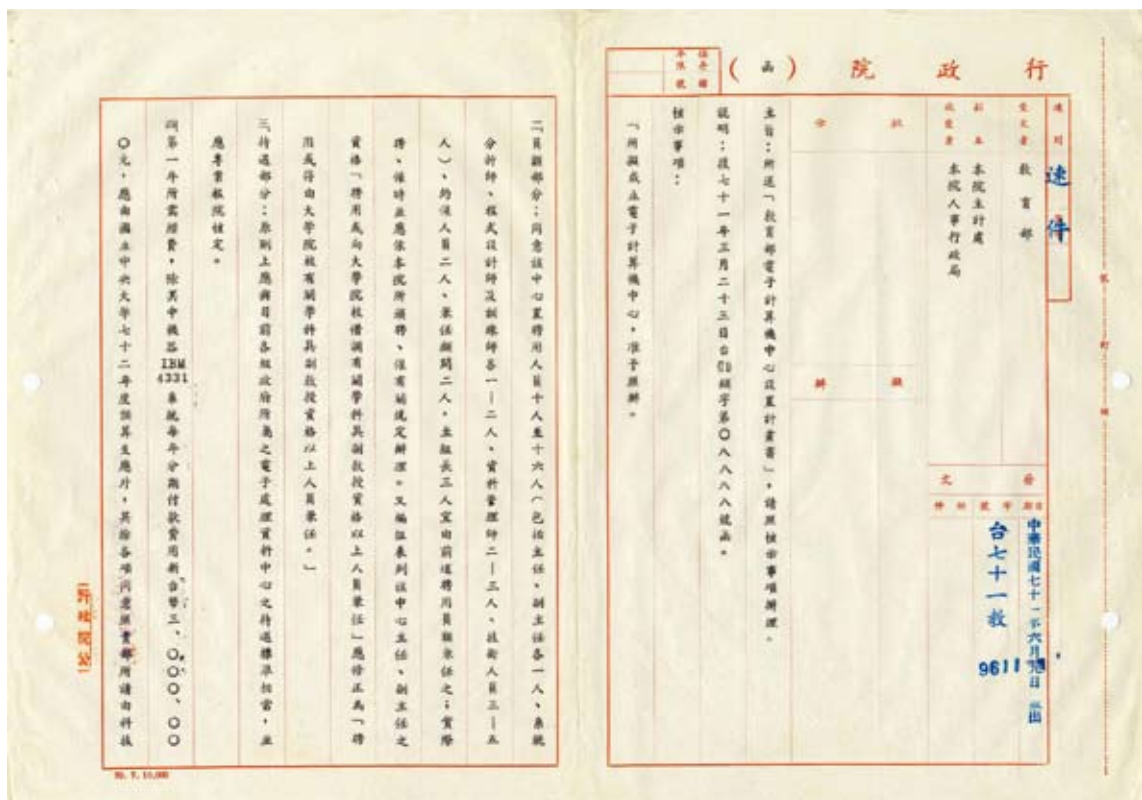 行政院（函）
保存年限
檔號
速別
速件
受文者
教育部
副本收受者
本院主計處
本院人事行政局
批示
擬辦
發文
日期
字號
附件
中華民國七十一年六月 日
台七十一教
9611
主旨：所送「教育部電子計算機中心設置計畫書」，請照核示事項辦理。
說明：復七十一年三月二十三日台(71)顧字第〇八八八八號函。
核示事項：
一、所擬成立電子計算機中心，准予照辦。
二、員額部分：同意該中心置聘用人員十人至十六人（包括主任、副主任各一人、系統
分析師、程式設計師及訓練師各一—二人、資料管理師二—三人、技術人員三—五
人）、約僱人員二人、兼任顧問二人，至組長三人宜由前述聘用員額兼任之；實際
聘、僱時並應依本院所頒聘、僱有關規定辦理。又編組表列該中心主任、副主任之
資格「聘用或向大學院校借調有關學科具副教授資格以上人員兼任」應修正為「聘
用或得由大學院校有關學科具副教授資格以上人員兼任。」
三、待遇部分：原則上應與目前各級政府所屬之電子處理資料中心之待遇標準相當，並
應專案報院核定。
四、第一年所需經費，除其中機器IBM 4331系統每年分期付款費用新台幣三、〇〇〇、〇〇
〇元，應由國立中央大學七十二年度預算支應外，其餘各項同意照貴部所請由科技
行政院公
50. 7. 10,000